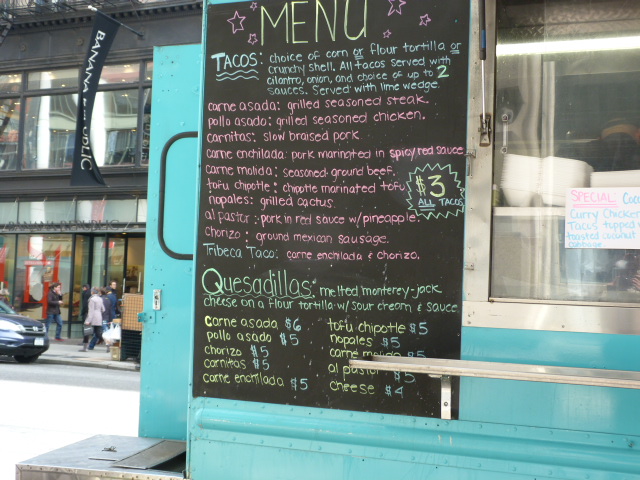 MENU
TACOS: choice of corn or flour tortilla or
crunchy shell. All tacos served with
cilantro, onion, and choice of up to 2
sauces. Served with lime wedge.
carne asada: grilled seasoned steak.
pollo asado: grilled seasoned chicken.
carnitas: slow braised pork
carne enchilada: pork marinated in spicy red sauce
carne molida: seasoned ground beef.
tofu chipotle: chipotle marinated tofu
nopales: grilled cactus.
al pastor: pork in red sauce w/pineapple.
chorizo: ground mexican sausage.
Tribeca Taco: carne enchilada & chorizo.
$3
ALL TACOS
Quesadillas: melted monterey-jack
cheese on a flour tortilla w/ sour cream & sauce.
carne asada $6
pollo asado $5
chorizo $5
carnitas $5
carne enchilada $5
tofu chipotle $5
nopales $5
carne molida $5
al pastor $5
cheese $4
SPECIAL: Coco
Curry Chicken
Tacos topped w
toasted coconut
cabbage
BANANA REPUBLIC